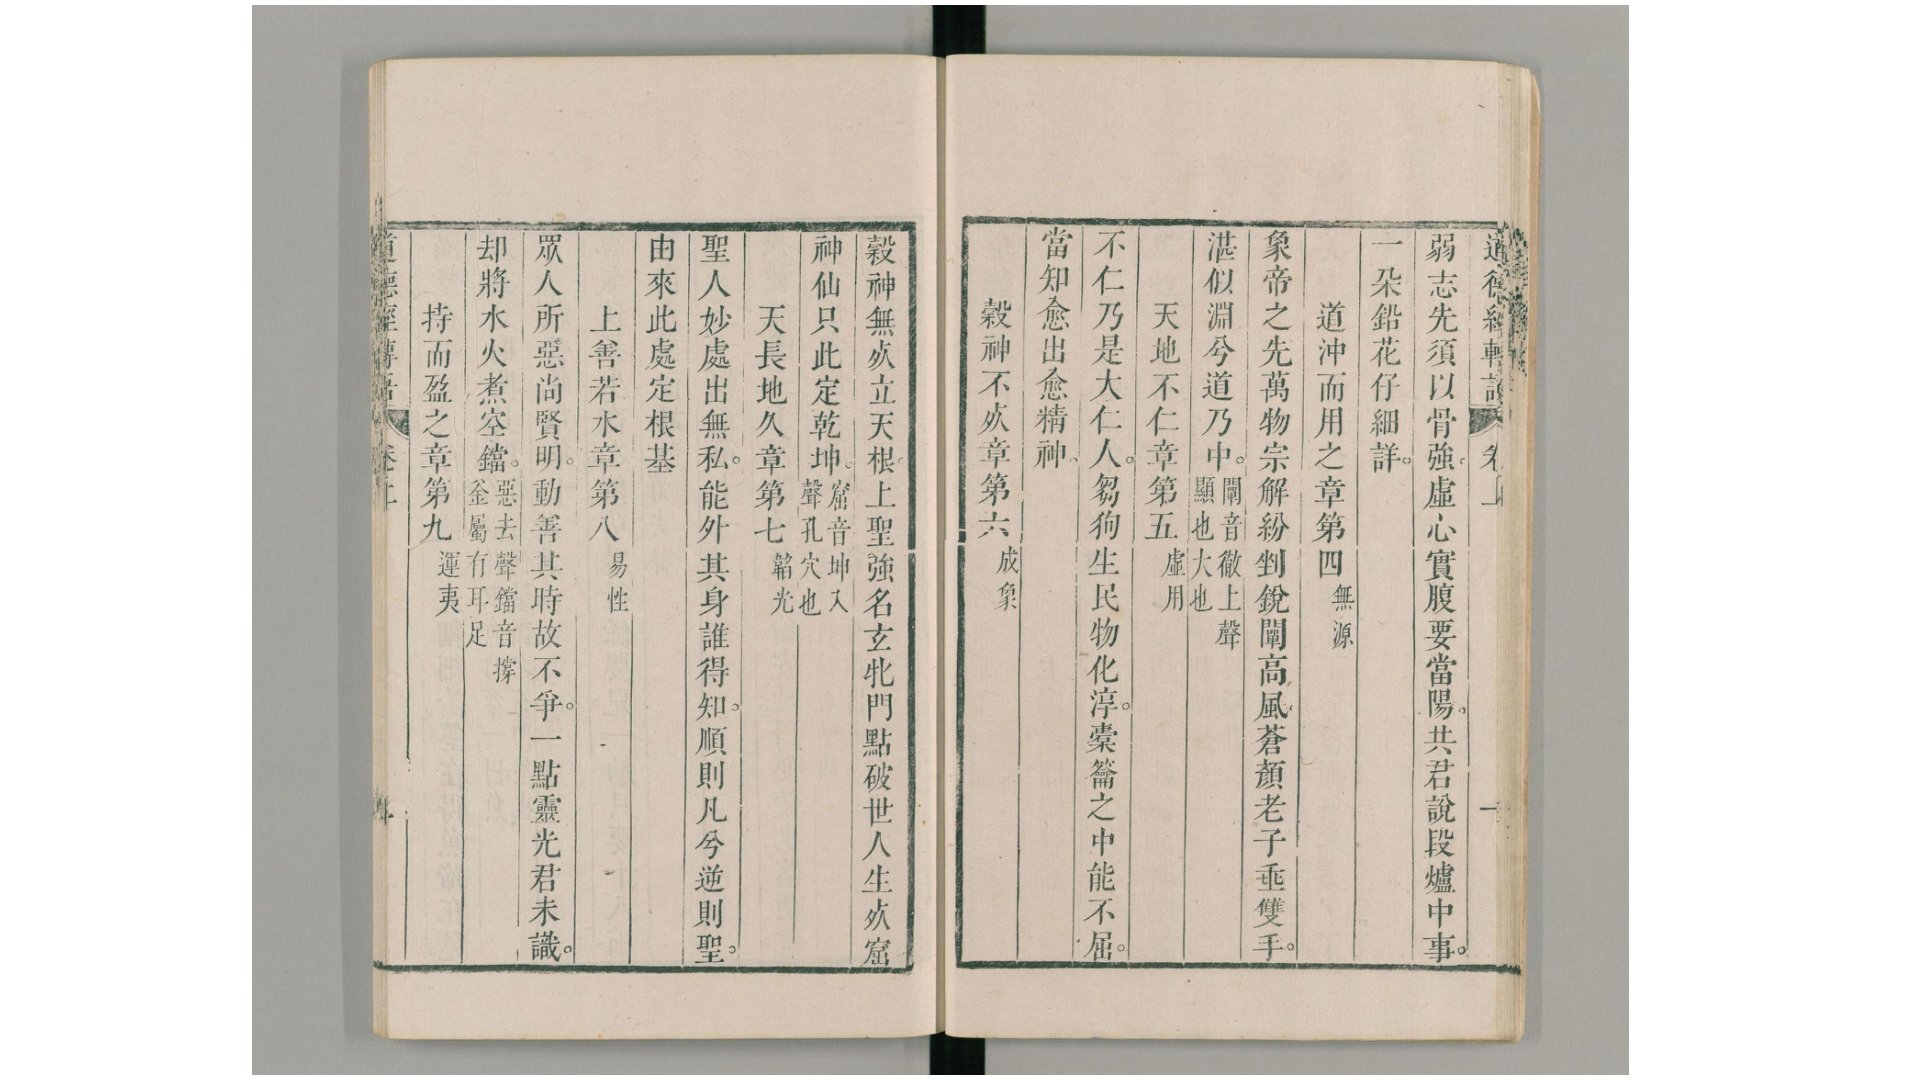 道德經轉語 卷上 一
弱志先須以骨強。虛心實腹要當陽。共君說段爐中事。
一朵鉛花仔細詳。
道沖而用之章第四 無源
象帝之先萬物宗解紛剉銳闡高風蒼顏老子垂雙手。
湛似淵兮道乃中。闡音徹上聲顯也大也
天地不仁章第五 虛用
不仁乃是大仁人。芻狗生民物化淳。橐籥之中能不屈。
當知愈出愈精神。
穀神不死章第六 成象
穀神無死立天根。上聖強名玄牝門點破世人生死窟
神仙只此定乾坤。窟音坤入聲孔穴也
天長地久章第七 韜光
聖人妙處出無私。能外其身誰得知。順則凡兮逆則聖。
由來此處定根基
上善若水章第八 易性
眾人所惡尚賢明。動善其時故不爭。一點靈光君未識。
却將水火煮空鐺。惡去聲鐺音撐釜屬有耳足
持而盈之章第九 運夷
道德經轉語 卷上